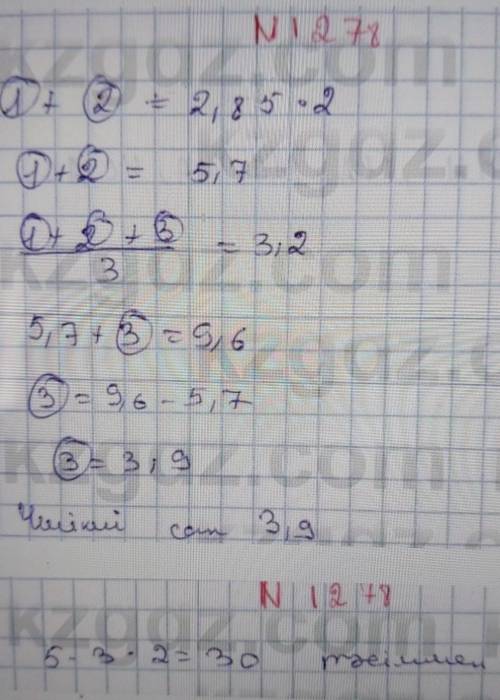 N 1278
① + ② = 2,85 · 2
① + ② = 5,7
① + ② + ③
3
= 3,2
5,7 + ③ = 9,6
③ = 9,6 - 5,7
③ = 3,9
Үшінші сан 3,9
N 1278
5 · 3 · 2 = 30 тәсілмен
kzgdz.com